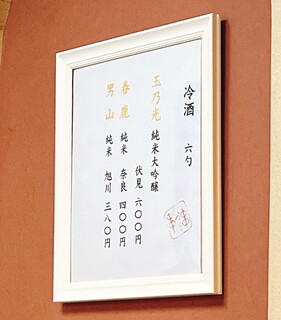 冷酒 六勺
玉乃光 純米大吟醸
伏見 六〇〇円
春鹿 純米 奈良 四〇〇円
男山 純米 旭川 三八〇円